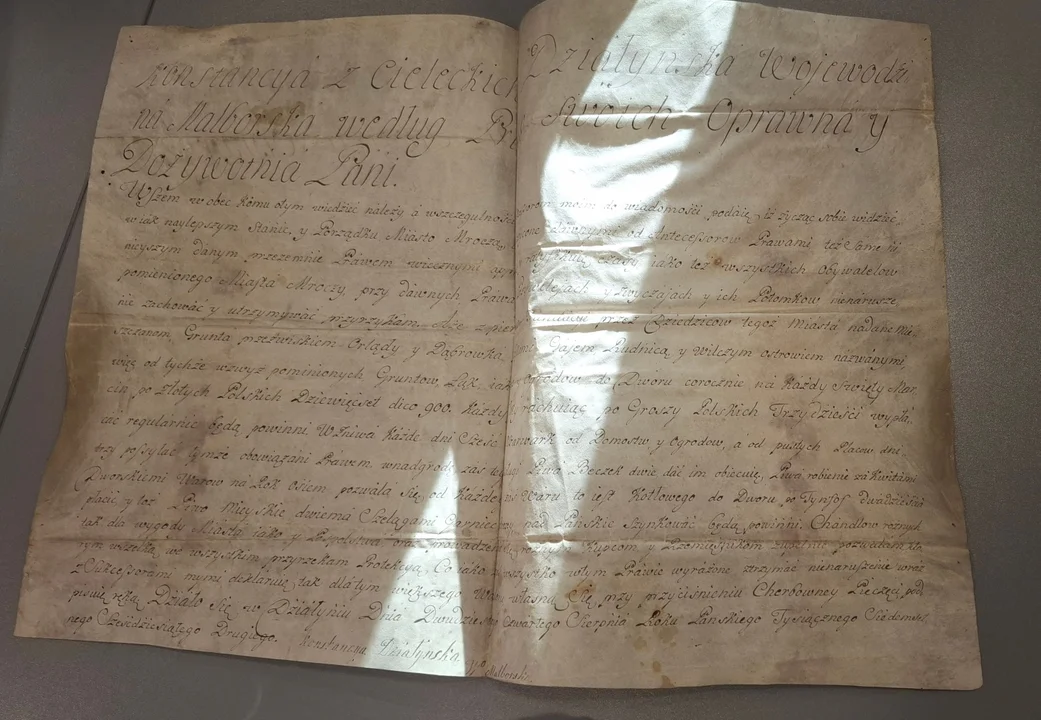 Konstancya z Cieleckich Działyńska Wojewodzi
na Malborska według swoich Oprawna y
Dożywotnia Pani.
Wszem w obec komu otym wiedzieć należy a wszczegulno moim do wiadomości podaię, iż życząc sobie widzieć
w iak naylepszym Stanie, y Porządku Miasto Mrocza od Antecessorow Prawami też same ni
nieyszym danym przezemnie Prawem wiecznymi iako też wszystkich Obywatelow
pomienionego Miasta Mroczy, przy dawnych Prawa y zwyczaiach y ich Potomkow nienarusze,
nie zachować y utrzymywać przyrzykam. Aże przez Dziedzicow tegoż Miasta nadane Mie
szczanom, Grunta przezwiskiem Orlądy y Dąbrowska Gaiem Rudnicą, y Wilczym ostrowiem nazwanymi,
więc od tychże wzwyz pominionych Gruntow, Łąk, Ogrodow, do Dworu corocznie na każdy Swięty Mar
cin po złotych Polskich Dziewięcset dico 900. każdy rachuiąc po Groszy Polskich Trzydzieści wypła,
cać regularnie będą powinni Wżniwa każde dni Cześć od Domostw, y Ogrodow, a od pustych Placow dni
trzy possylac tymże obowiązani Prawem wnadgrodę zas Piwa Beczek dwie dać im obiecuię, Piwa robienie za kwitami
Dworskiemi Warow na Rok Osiem pozwala się, od każdego Waru to iest Kotłowego do Dworu po Tynfow dwadzieścia
płacić y też Piwo Mieyskie dwiema Szelągami Garniec nad Pańskie Szynkować będą powinni Chandlow roznych
tak dla wygody Miasta iako y Pospolstwa oraz Prowadzenia roznym Kupcom y Rzemieśnikom zupełnie pozwalam, kto
rym wszelką we wszystkim przyrzekam Protekcyą, Co iako wszystko wtym Prawie wyrażone strzymać nienaruszenie wraz
z Sukcessorami mymi deklaruię, tak dla tym większego własną Się przy przyciśnieniu Cherbowney Pieczęci pod
pisuię ręką Działo się w Działyniu Dnia Dwudziestego Czwartego Sierpnia Roku Pańskiego Tysiącznego Siedemset,
nego Cześćdziesiątego Drugiego. Konstancya Działyńska W Malborska